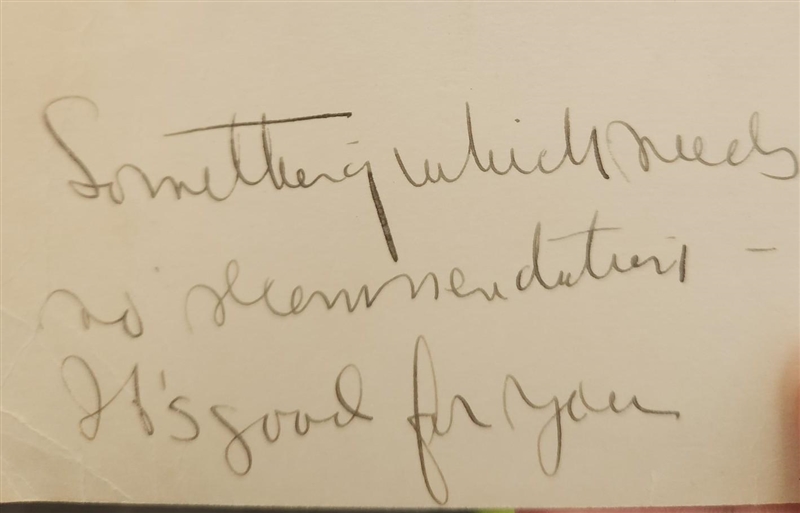 Something which needs
no recommendation –
It's good for you